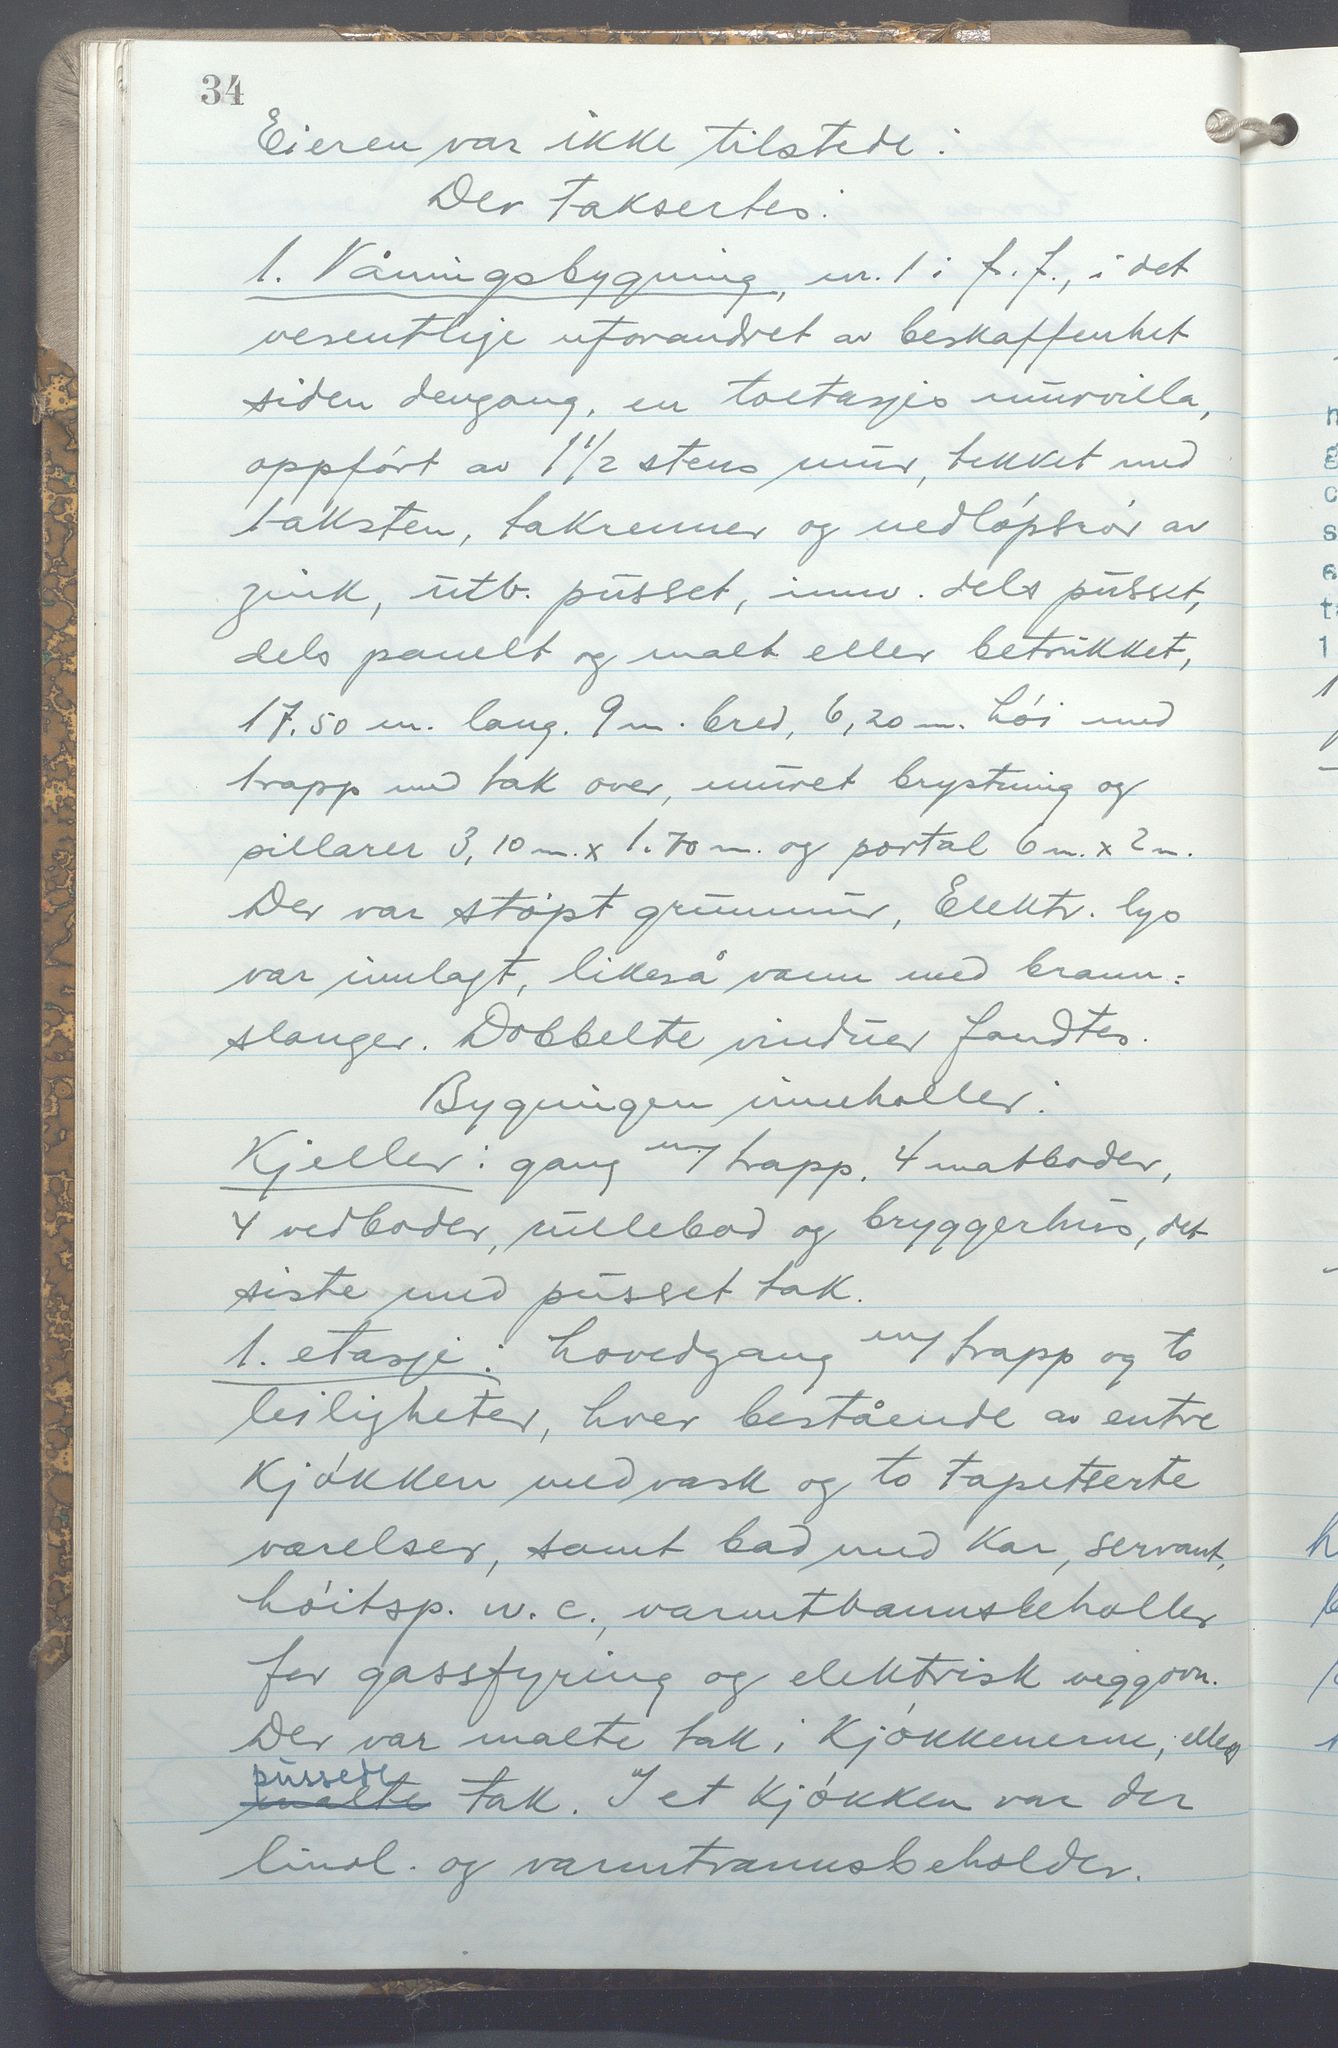 34
Eieren var ikke tilstede:
Der taksertes:
1. Våningsbygning, nr. 1 i f. f., i det
vesentlige uforandret av beskaffenhet
siden dengang, en toetasjes murvilla,
oppført av 1 1/2 stens mur, tekket med
taksten, takrenner og nedløpsrør av
zink, utv. pusset, innv. dels pusset,
dels panelt og malt eller betrukket,
17.50 m. lang. 9 m. bred, 6,20 m. høi med
trapp med tak over, muret brystning og
pillarer 3,10 m. x 1.70 m. og portal 6 m. x 2 m.
Der var støpt grunnmur, Elektr. lys
var innlagt, likeså vann med brann=
slanger. Dobbelte vinduer fandtes.
Bygningen inneholler:
Kjeller: gang m/ trapp, 4 matboder,
4 vedboder, rullebod og bryggerhus, det
siste med pusset tak.
1. etasje: hovedgang m/ trapp og to
leiligheter, hver bestående av entre
kjøkken med vask og to tapetserte
værelser, samt bad med kar, servant,
høitsp. w. c., varmtvannsbeholler
for gassfyring og elektrisk veggovn.
Der var malte tak i kjøkkenerne, ellers
pussede
malte tak. I et kjøkken var der
linol. og varmtvannsbeholder.